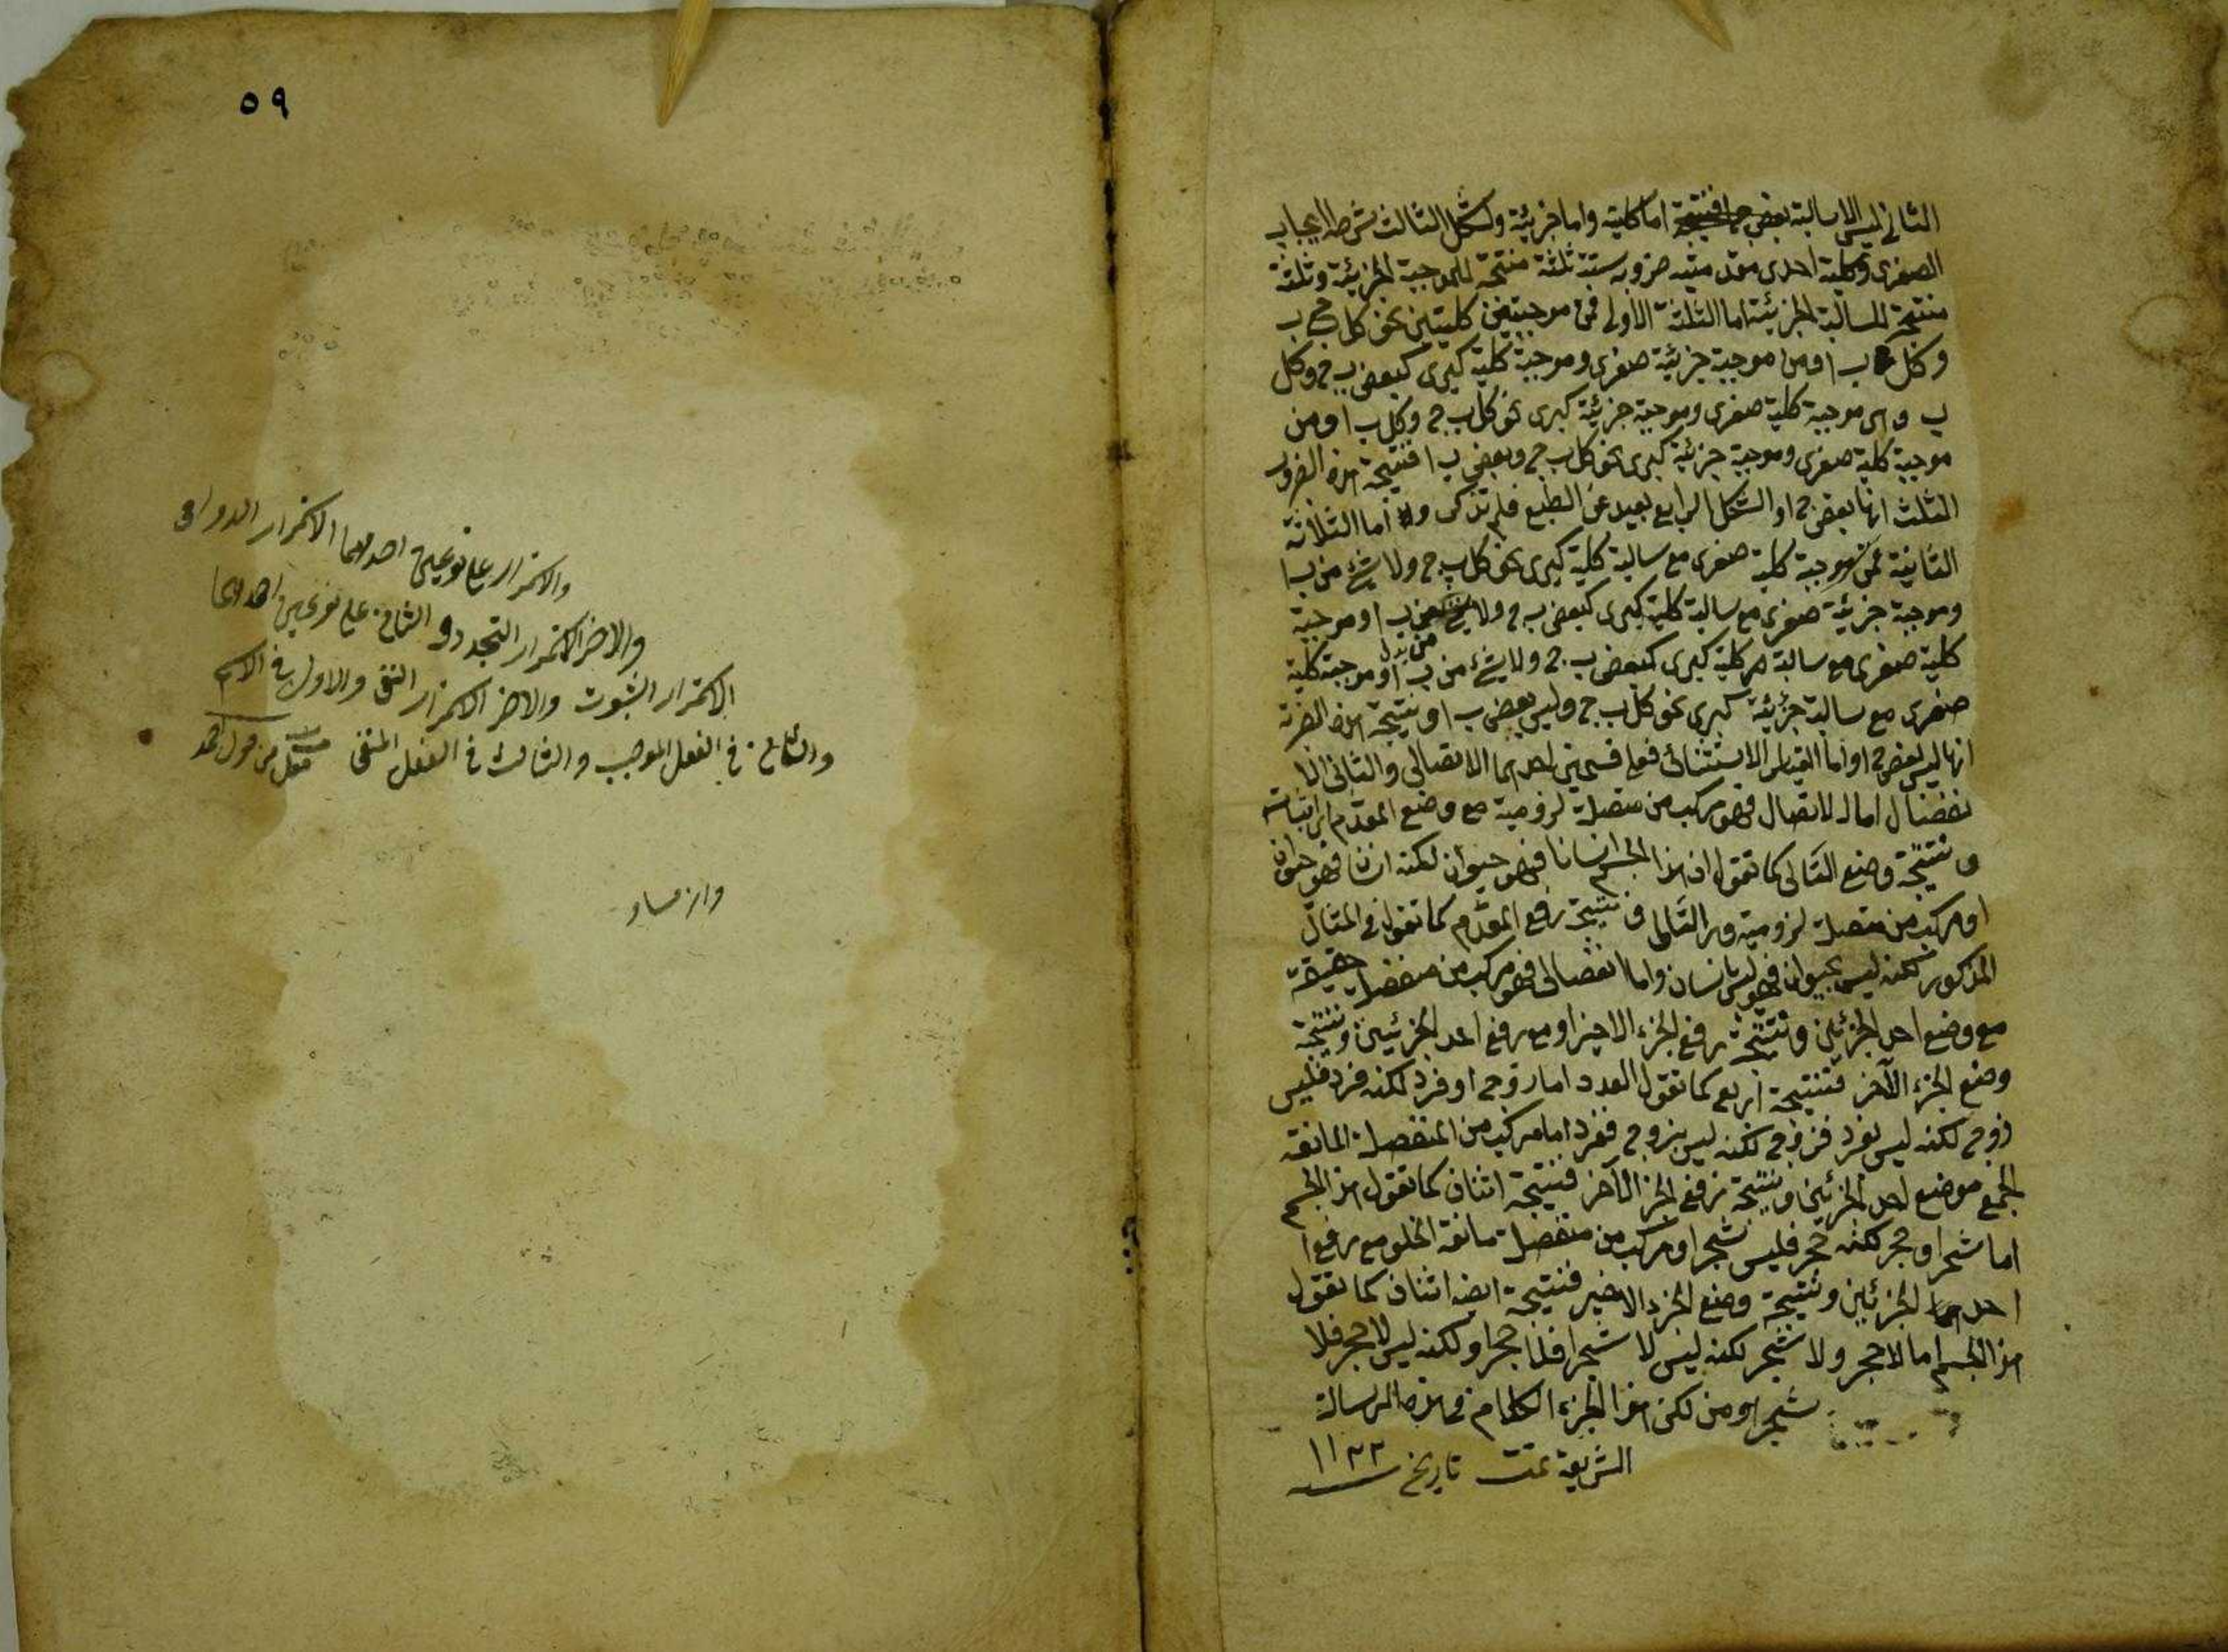 الثانى ليس الا سالبة اما كلية واما جزئية والشكل الثالث شرطه ايجاب
الصغرى وكلية احدى مقدمتيه ضروبه ستة ثلثة منتجة للموجبة الجزئية وثلثة
منتجة للسالبة الجزئية اما الثلثة الاولى فمن موجبتين كليتين نحو كل ج ب
وكل ب ا ومن موجبة جزئية صغرى وموجبة كلية كبرى كبعض ب ج وكل
ب ا موجبة كلية صغرى وموجبة جزئية كبرى نحو كل ب ج وكل ب ا ومن
موجبة كلية صغرى وموجبة جزئية كبرى نحو كل ب ج وبعض ب ا فنتيجة هذه الضروب
الثلث انها بعض ج ا والشكل الرابع بعيد عن الطبع فلم تذكر واما الثلاثة
الثانية فمن موجبة كلية صغرى مع سالبة كلية كبرى نحو كل ب ج ولا شئ من ب ا
وموجبة جزئية صغرى مع سالبة كلية كبرى كبعض ب ج ولا شئ من ب ا وموجبة
كلية صغرى مع سالبة كلية كبرى كبعض ب ج ولا شئ من ب ا وموجبة كلية
صغرى مع سالبة جزئية كبرى نحو كل ب ج وليس بعض ب ا ونتيجة هذه
انها ليس بعض ج ا واما القياس الاستثنائى فعلى قسمين احدهما الاتصالى والثانى الا
نفصال اما الاتصال فهو مركب من متصلة لزومية مع وضع المقدم اى اثباته
ونتيجة وضع التالى كما تقول ان هذا الجسم انسانا فهو حيوان لكنه انسان فهو حيوان
او مركب من متصلة لزومية التالى ونتيجة رفع المقدم كما تقول فى المثال
المذكور لكنه ليس بحيوان فهو ليس بانسان واما انفصالى فهو مركب من منفصلة حقيقة
مع وضع احد الجزئين ونتيجة رفع الجزء الاخير او مع رفع احد الجزئين ونتيجة
وضع الجزء الآخر فنتيجة اربع كما تقول العدد اما زوج او فرد لكنه فرد فليس
زوج لكنه ليس بفرد فزوج لكنه ليس بزوج ففرد اما مركب من المنفصلة المانعة
الجمع موضع احد الجزئين ونتيجة رفع الجزء الآخر فنتيجة اثنان كما تقول هذا الجسم
اما شجر او حجر لكنه حجر فليس شجر او مركب من منفصلة مانعة الخلو مع رفع
احد الجزئين ونتيجة وضع الجزء الاخير فنتيجة ايضا اثنان كما تقول
هذا الجسم اما لا حجر ولا شجر لكنه ليس لا شجرا فلا حجرا ولكنه ليس لا حجر فلا
شجر ومن لكن هذا الجزء الكلام فى هذه الرسالة
الشريفة تمت تاريخ ١١٣٣
٥٩
والاستمرار على نوعين احدهما الاستمرار الدوامى
والاخر الاستمرار التجددى والثانى على نوعين احدهما
الاستمرار الثبوت والاخر الاستمرار النفى والاول فى الاسم
والثانى فى الفعل الموجب والثالث فى الفعل المنفى